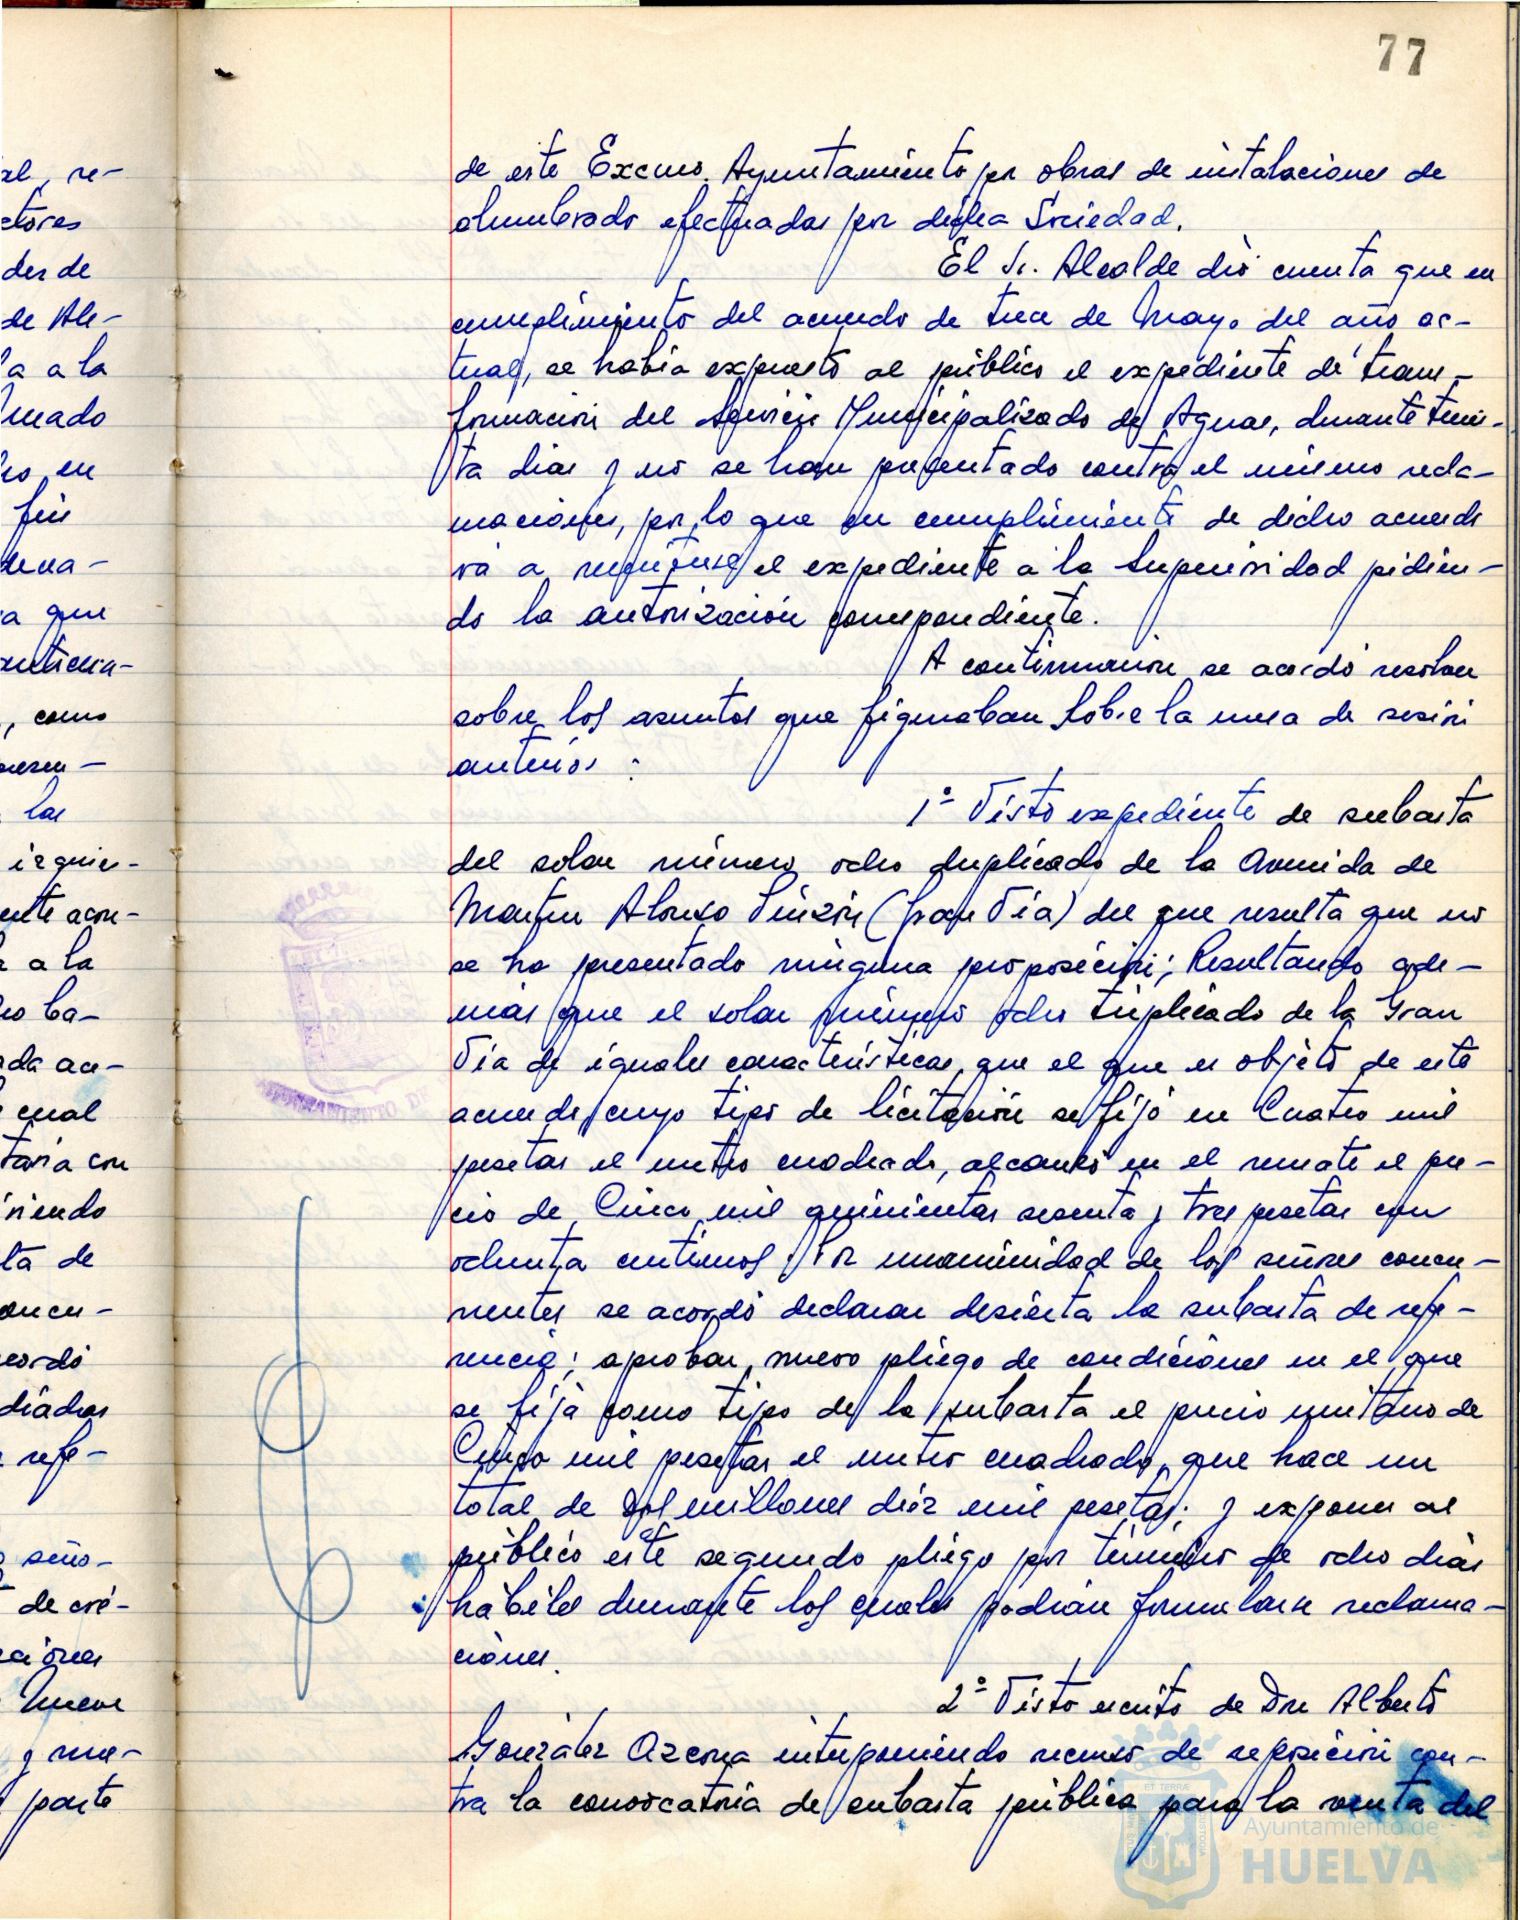 77
de este Excmo. Ayuntamiento por obras de instalaciones de
alumbrado efectuadas por dicha Sociedad.
El Sr. Alcalde dió cuenta que en
cumplimiento del acuerdo de trece de Mayo del año ac-
tual, se había expuesto al público el expediente de trans-
formación del Servicio Municipalizado de Aguas, durante trein-
ta días y no se han presentado contra el mismo recla-
maciones, por lo que en cumplimiento de dicho acuerdo
vá a remitirse el expediente a la Superioridad pidien-
do la autorización correspondiente.
A continuación se acordó resolver
sobre los asuntos que figuraban sobre la mesa de sesión
anterior:
1º Visto expediente de subasta
del solar número ocho duplicado de la Avenida de
Martín Alonso Pinzón (Gran Vía) del que resulta que no
se ha presentado ninguna proposición; Resultando ade-
más que el solar número ocho triplicado de la Gran
Vía de iguales características que el que es objeto de este
acuerdo, cuyo tipo de licitación se fijó en Cuatro mil
pesetas el metro cuadrado, alcanzó en el remate el pre-
cio de Cinco mil quinientas sesenta y tres pesetas con
ochenta centimos. Por unanimidad de los señores concu-
rrentes se acordó declarar desierta la subasta de refe-
rencia; aprobar nuevo pliego de condiciones en el que
se fija como tipo de la subasta el precio unitario de
Cinco mil pesetas el metro cuadrado, que hace un
total de dos millones diez mil pesetas; y exponer al
público este segundo pliego por término de ocho días
hábiles durante los cuales podrán formularse reclama-
ciones.
2º Visto escrito de Don Alberto
González Azcona interponiendo recurso de reposición con-
tra la convocatoria de subasta pública para la venta del
al, re-
ctores
der de
de Ale-
la a la
en
fin
a que
, como
las
izquier-
ente acor-
a la
ada ac-
cual
taria con
niendo
ta de
oncu-
cordó
refe-
seño-
de cré-
aciones
Nueve
parte
AYUNTAMIENTO DE
ET TERRÆ
Ayuntamiento de
HUELVA